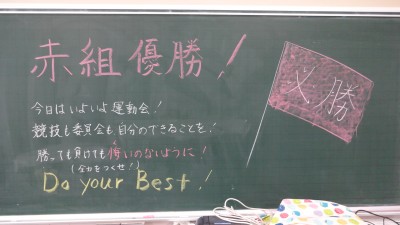 赤組優勝!
必勝
今日はいよいよ運動会!
競技も委員会も自分のできることを!
勝っても負けても悔いのないように!
(全力をつくせ!)
Do your Best!